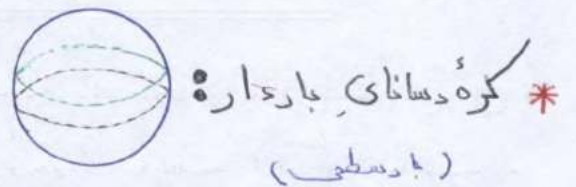 * کرهٔ رسانای باردار:
(بار سطحی)